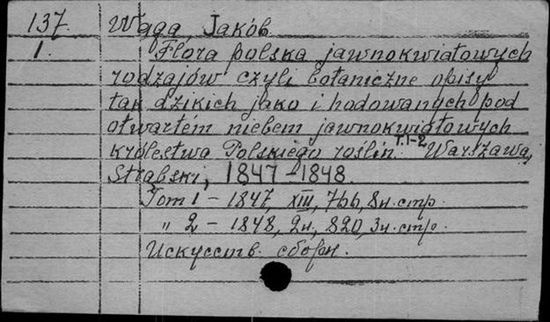 137. Waga, Jakób.
1. Flora polska jawnokwiatowych
rodzajów czyli botaniczne opisy
tak dzikich jako i hodowanych pod
otwartém niebem jawnokwiatowych
królestwa Polskiego roślin T.1-2 Warszawa,
Strąbski, 1847-1848.
Tom 1 - 1847 XIII, 766, 8н. стр.
" 2 - 1848, 2н, 820, 3н. стр.
Искусств. сборн.